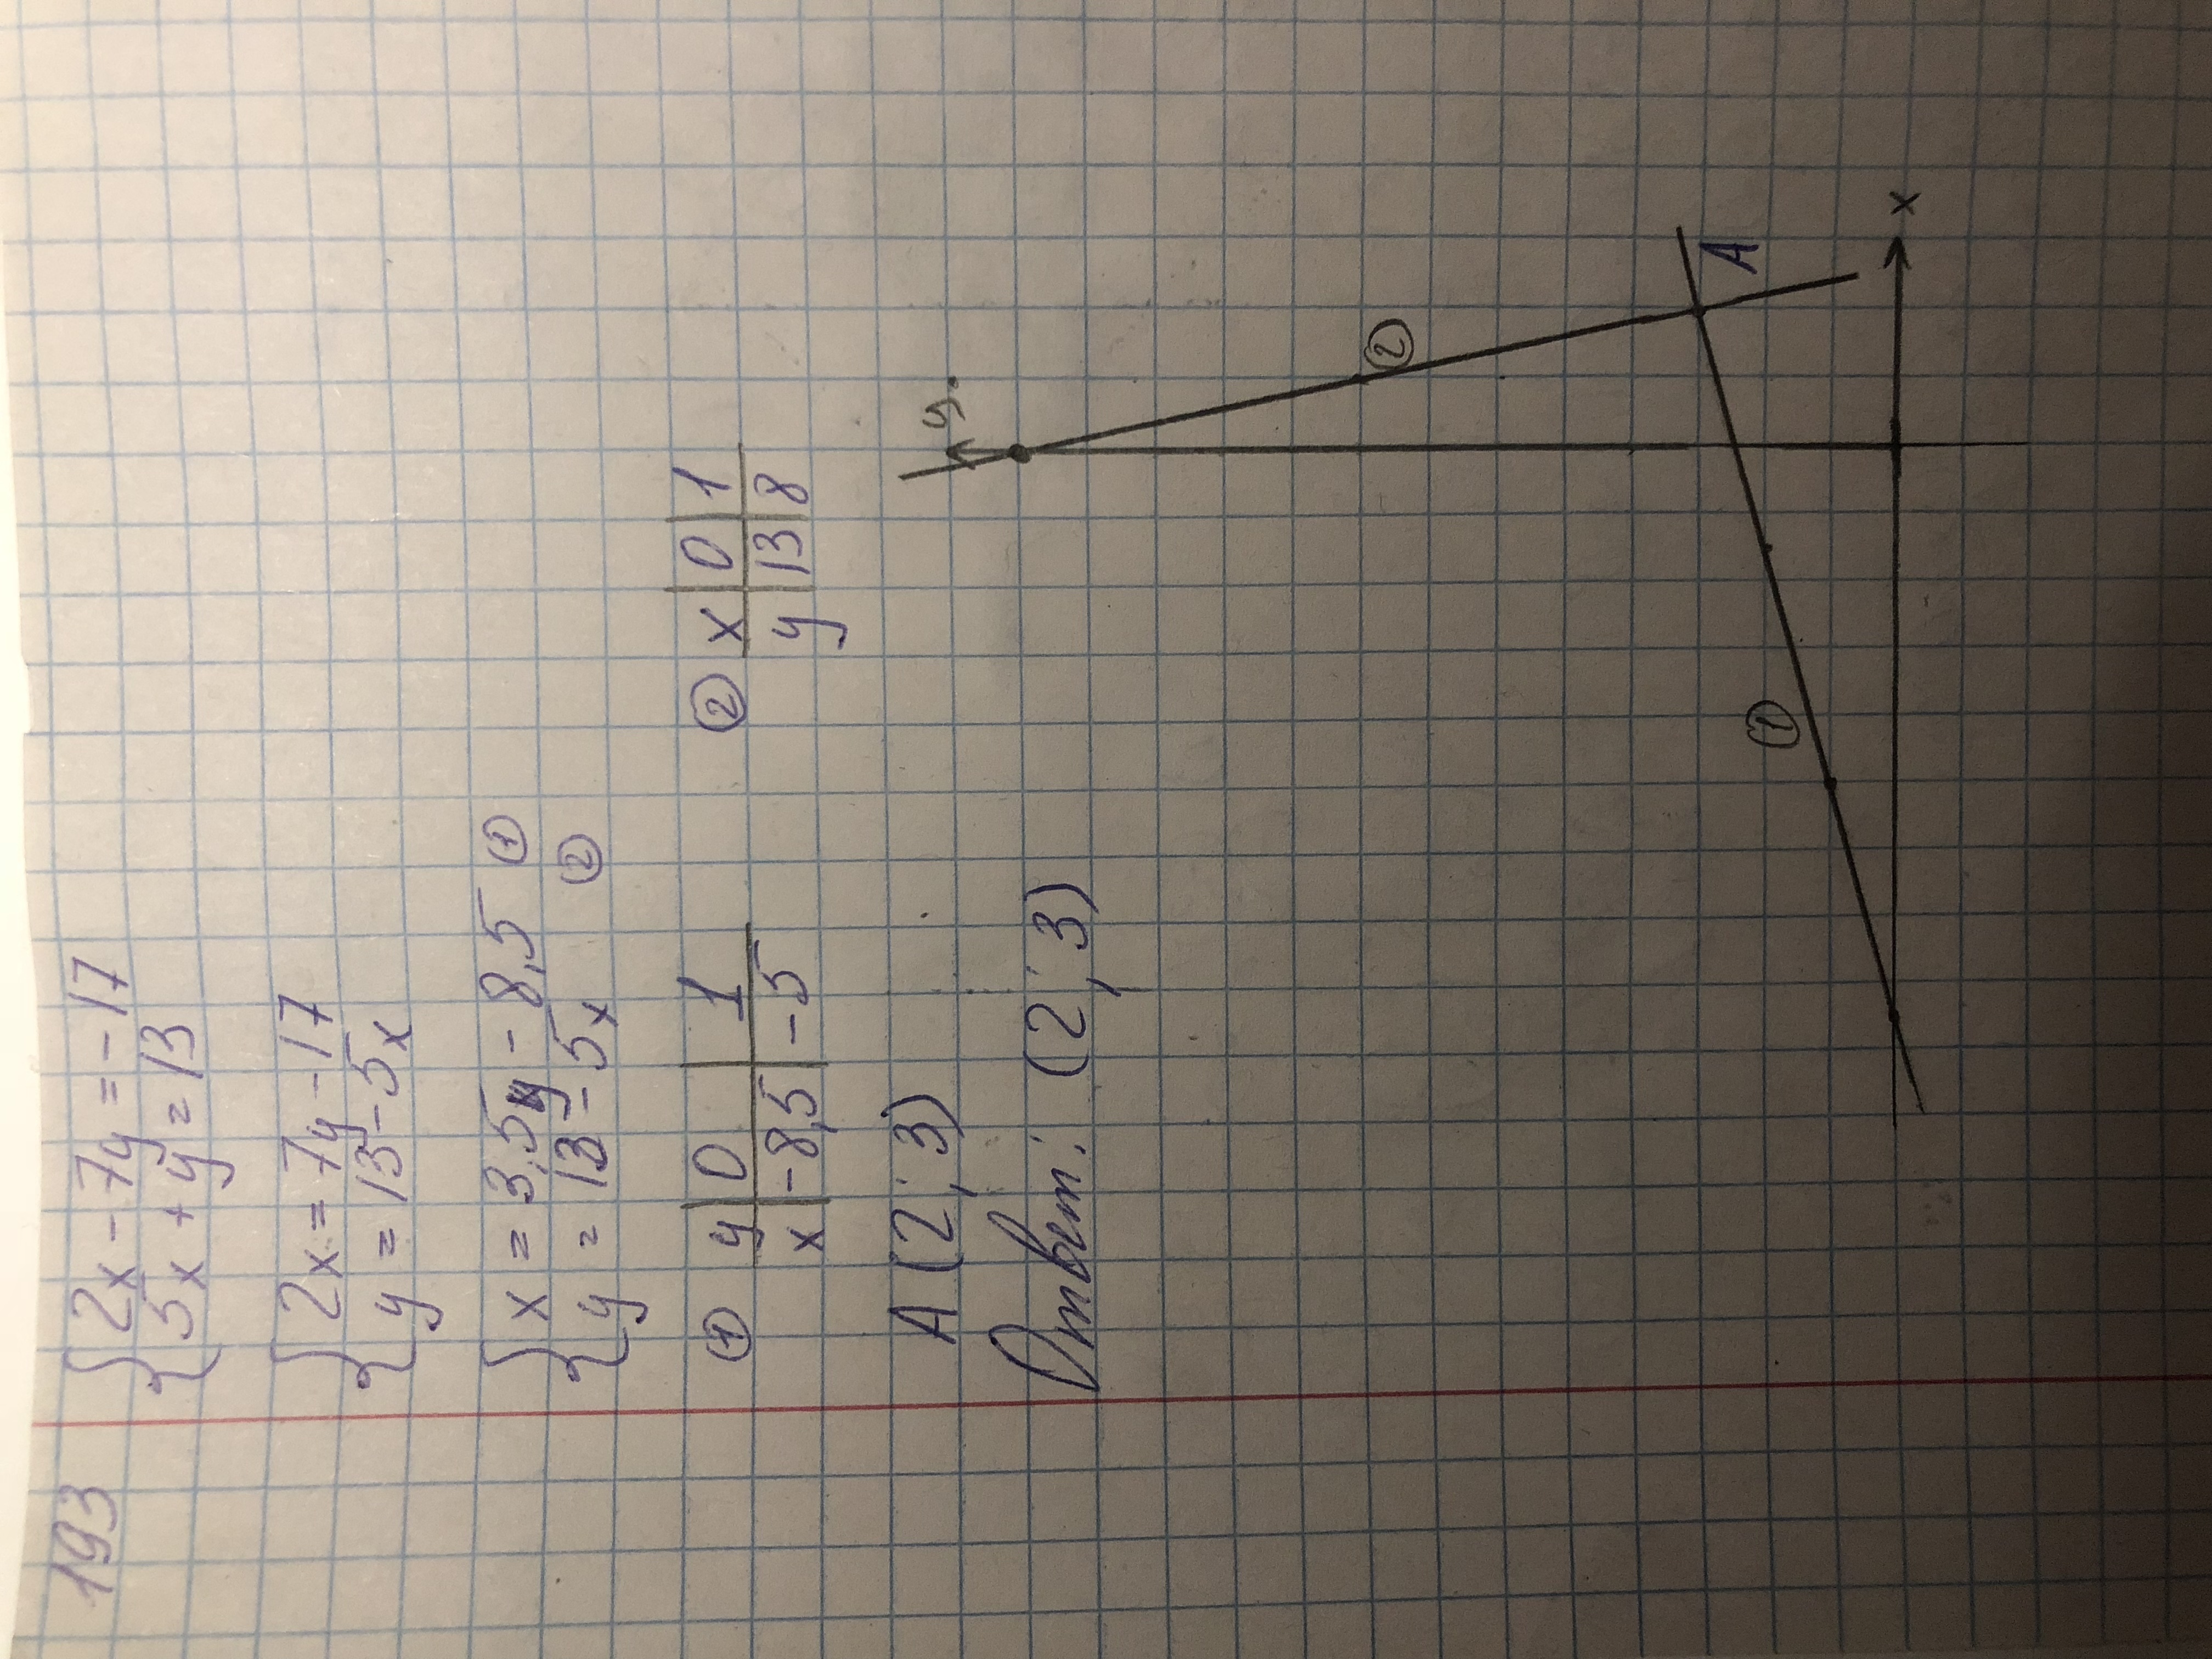 193
{ 2x - 7y = -17
5x + y = 13
{ 2x = 7y - 17
y = 13 - 5x
{ x = 3,5y - 8,5 ①
y = 13 - 5x ②
① y 0 1
x -8,5 -5
② x 0 1
y 13 8
A (2; 3)
Ответ: (2; 3)
y
②
①
A
x